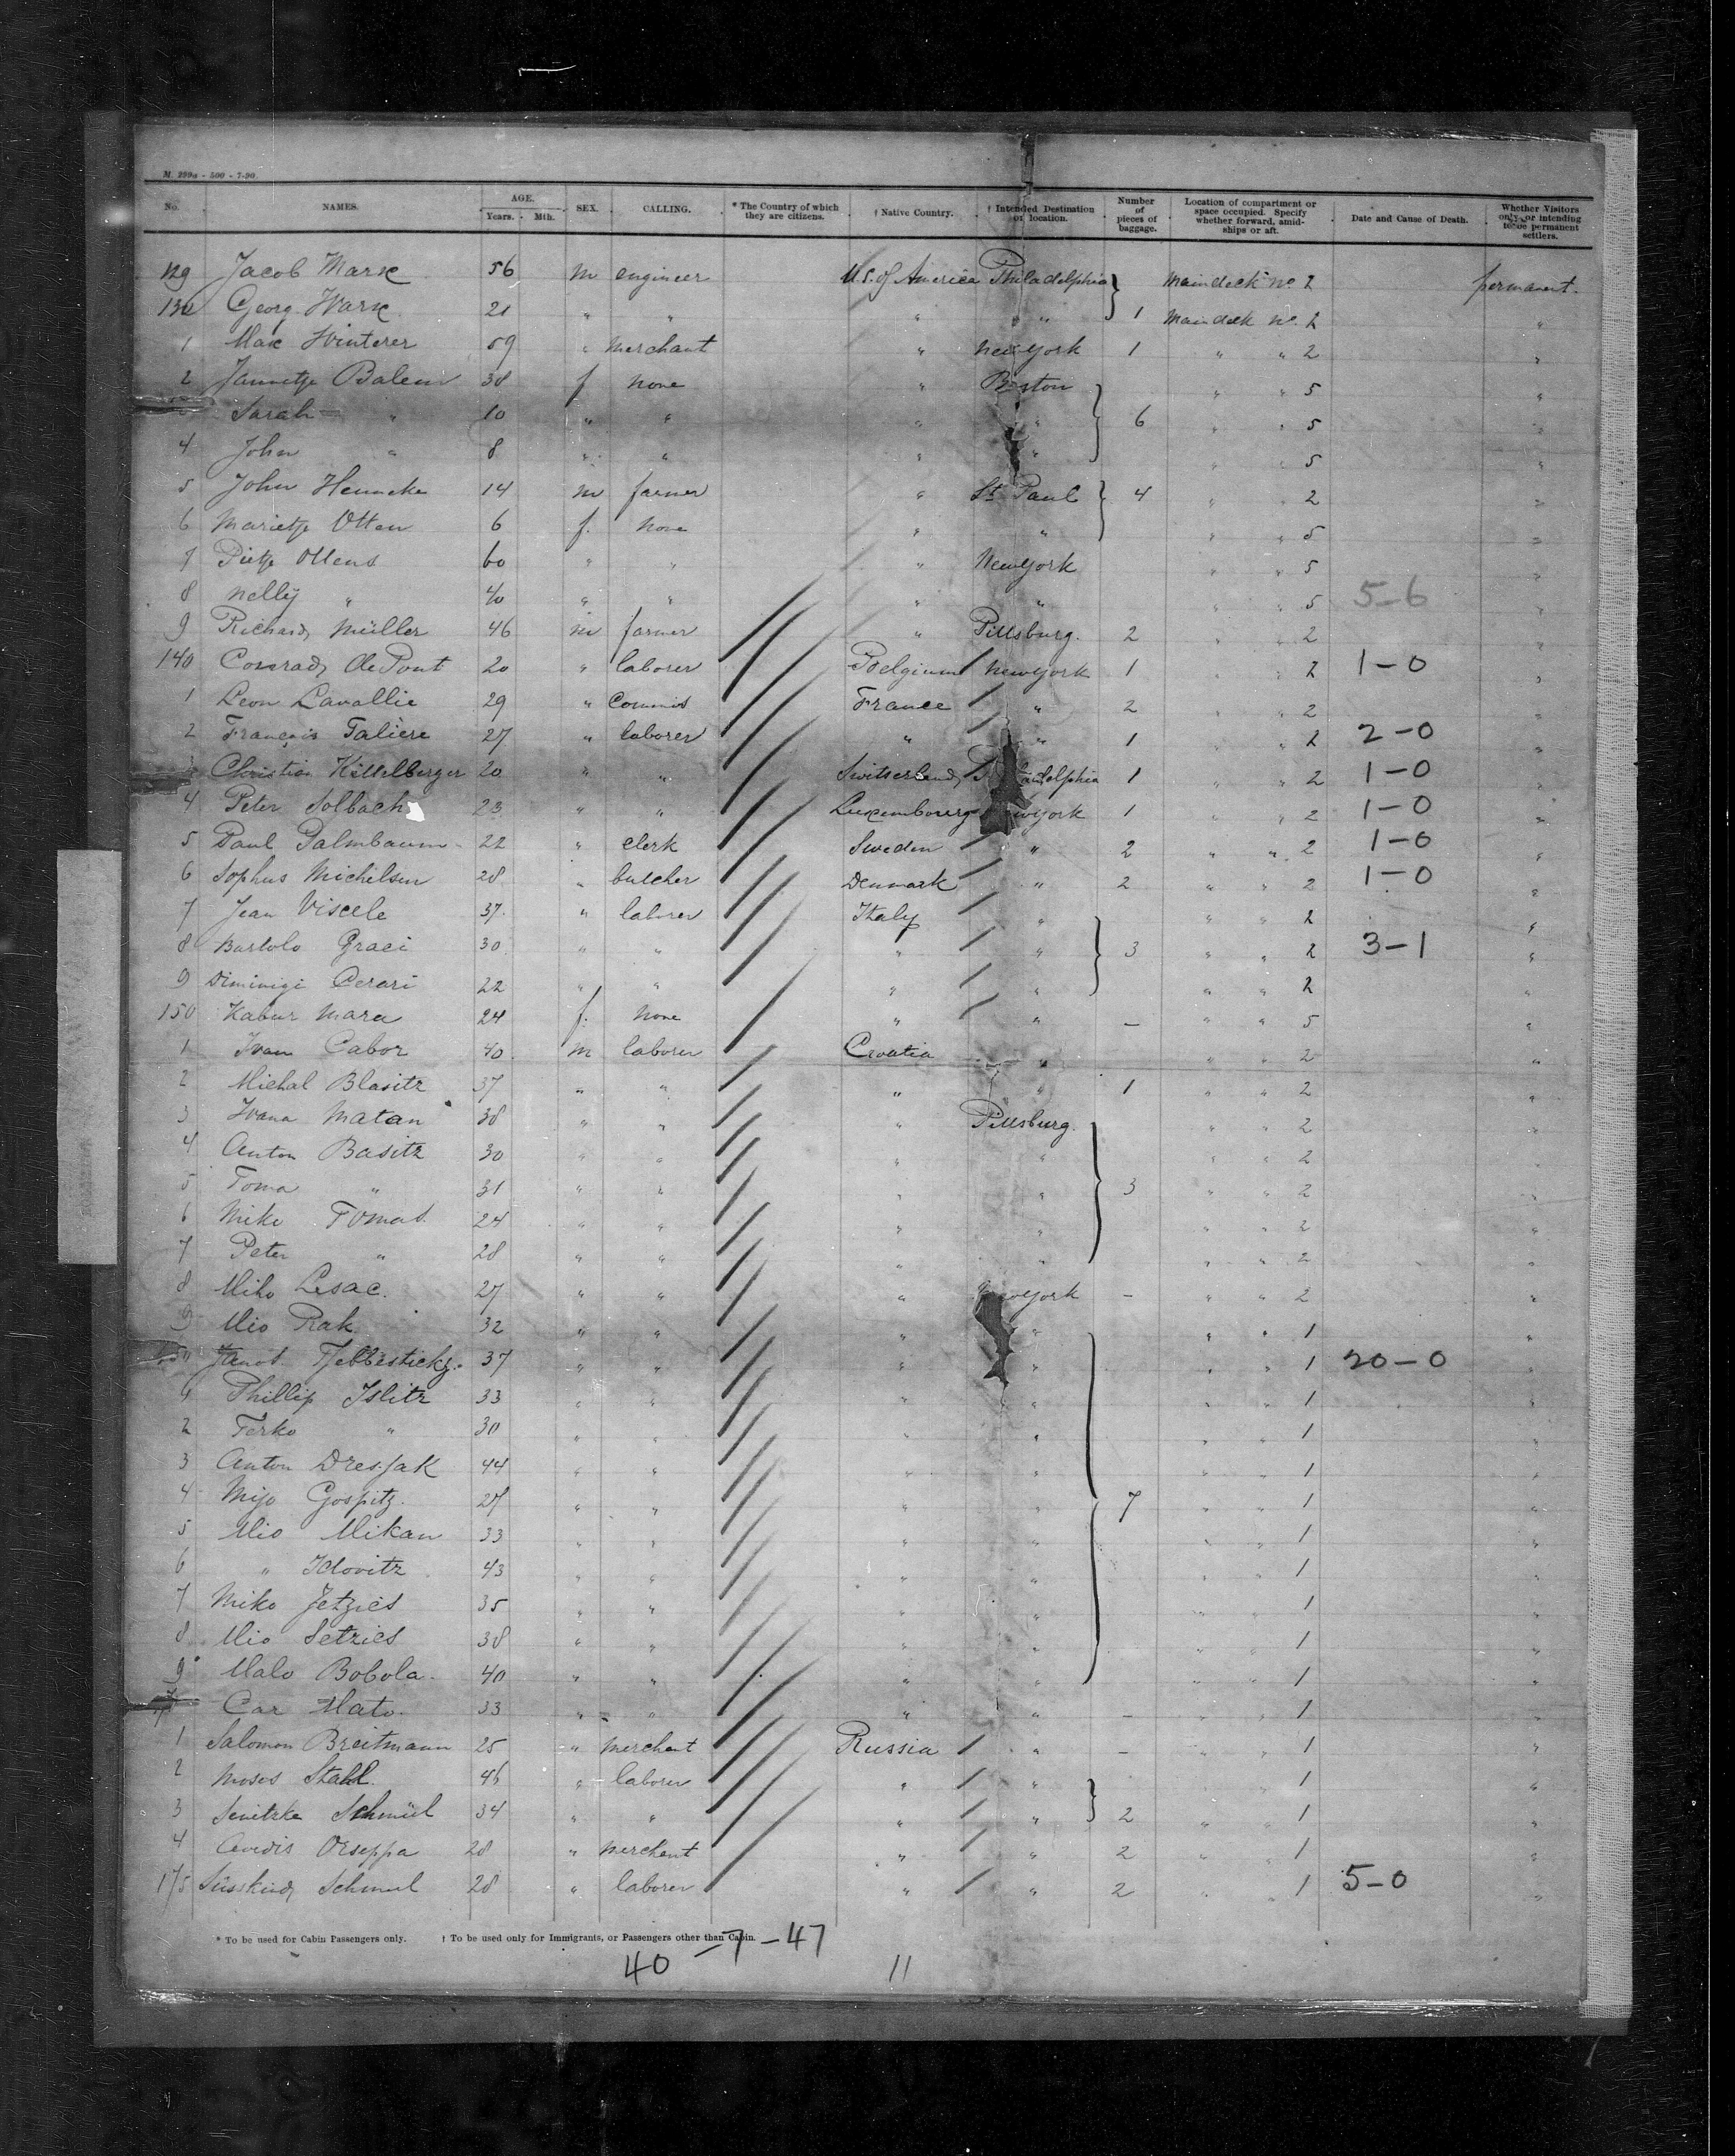 M. 299a - 500 - 7-90.
No. NAMES. AGE. Years. Mth. SEX. CALLING. * The Country of which they are citizens. † Native Country. † Intended Destination or location. Number of pieces of baggage. Location of compartment or space occupied. Specify whether forward, amid-ships or aft. Date and Cause of Death. Whether Visitors only, or intending to be permanent settlers.
129 Jacob Marx 56 m engineer U.S. of America Philadelphia Maindeck no 2 permanent.
130 Georg Marx 21 " " " " 1 Maindeck no. 2 "
1 Max Winterer 59 " Merchant " New York 1 " " 2 "
2 Jannetje Balem 38 f none " Boston " " 5 "
Sarah " 10 " " " " 6 " " 5 "
4 John " 8 " " " " " " 5 "
5 John Henneke 14 m farmer " St. Paul 4 " " 2 "
6 Marietje Otten 6 f. none " " " " 5 "
7 Pietje Ottens 60 " " " New York " " 5 "
8 Nelly " 40 " " " " " " 5 5-6 "
9 Richard Müller 46 m farmer " Pittsburg. 2 " " 2 "
140 Conrad de Pont 20 " laborer Belgium New York 1 " " 2 1-0 "
1 Leon Lavallie 29 " Commis France " 2 " " 2 "
2 François Talière 27 " laborer " " 1 " " 2 2-0 "
3 Christian Kittelberger 20 " " Switserland 1 " " 2 1-0 "
4 Peter Solbach 23 " " Luxembourg 1 " " 2 1-0 "
5 Paul Palmbaum 22 " clerk Sweden " 2 " " 2 1-0 "
6 Sophus Michelsen 28 " butcher Denmark " 2 " " 2 1-0 "
7 Jean Viscele 37. " laborer Italy " " " 2 "
8 Bartolo Graci 30. " " " " 3 " " 2 3-1 "
9 Diminigi Cerari 22 " " " " " " 2 "
150 Kabur Mara 24 f. none " " - " " 5 "
1 Ivan Cabor 40. m laborer Croatia " " " 2 "
2 Michal Blasitz 37 " " " " 1 " " 2 "
3 Ivana Matan 38 " " " Pittsburg. " " 2 "
4 Anton Basitz 30 " " " " " " 2 "
5 Toma " 31 " " " " 3 " " 2 "
6 Miko Tomas. 24 " " " " " " 2 "
7 Peter " 28 " " " " " " 2 "
8 Miho Lesac. 27 " " " New York - " " 2 "
9 Mio Rak. 32 " " " " " " 1 "
Janos 37 " " " " " " 1 20-0 "
1 Phillip Islitz 33 " " " " " " 1 "
2 Ferko " 30 " " " " " " 1 "
3 Anton Dresjak 44 " " " " " " 1 "
4 Mijo Gospitz. 27 " " " " 7 " " 1 "
5 Mio Mikan 33 " " " " " " 1 "
6 " Idovitz 43 " " " " " " 1 "
7 Miko Jetzics 35 " " " " " " 1 "
8 Mio Setzics 38 " " " " " " 1 "
9 Malo Bobola. 40 " " " " " " 1 "
Car Mato. 33 " " " " - " " 1 "
1 Salomon Breitmann 25 " Merchent Russia " - " " 1 "
2 Moses Stahl. 46 " laborer " " " " 1 "
3 Senitzke Schmül 34 " " " " 2 " " 1 "
4 Avedis Orseppa 28 " Merchent " " 2 " " 1 "
175 Süsskind Schmul 28 " laborer " " 2 " " 1 5-0 "
* To be used for Cabin Passengers only. † To be used only for Immigrants, or Passengers other than Cabin.
40 - 7 - 47 11